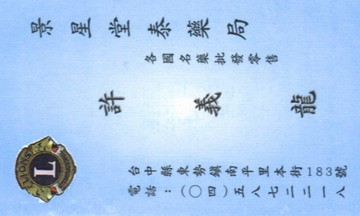 景星堂泰藥局
各國名藥批發零售
許義龍
台中縣東勢鎮南平里本街183號
電話：(〇四)五八七二二一八
LIONS
L